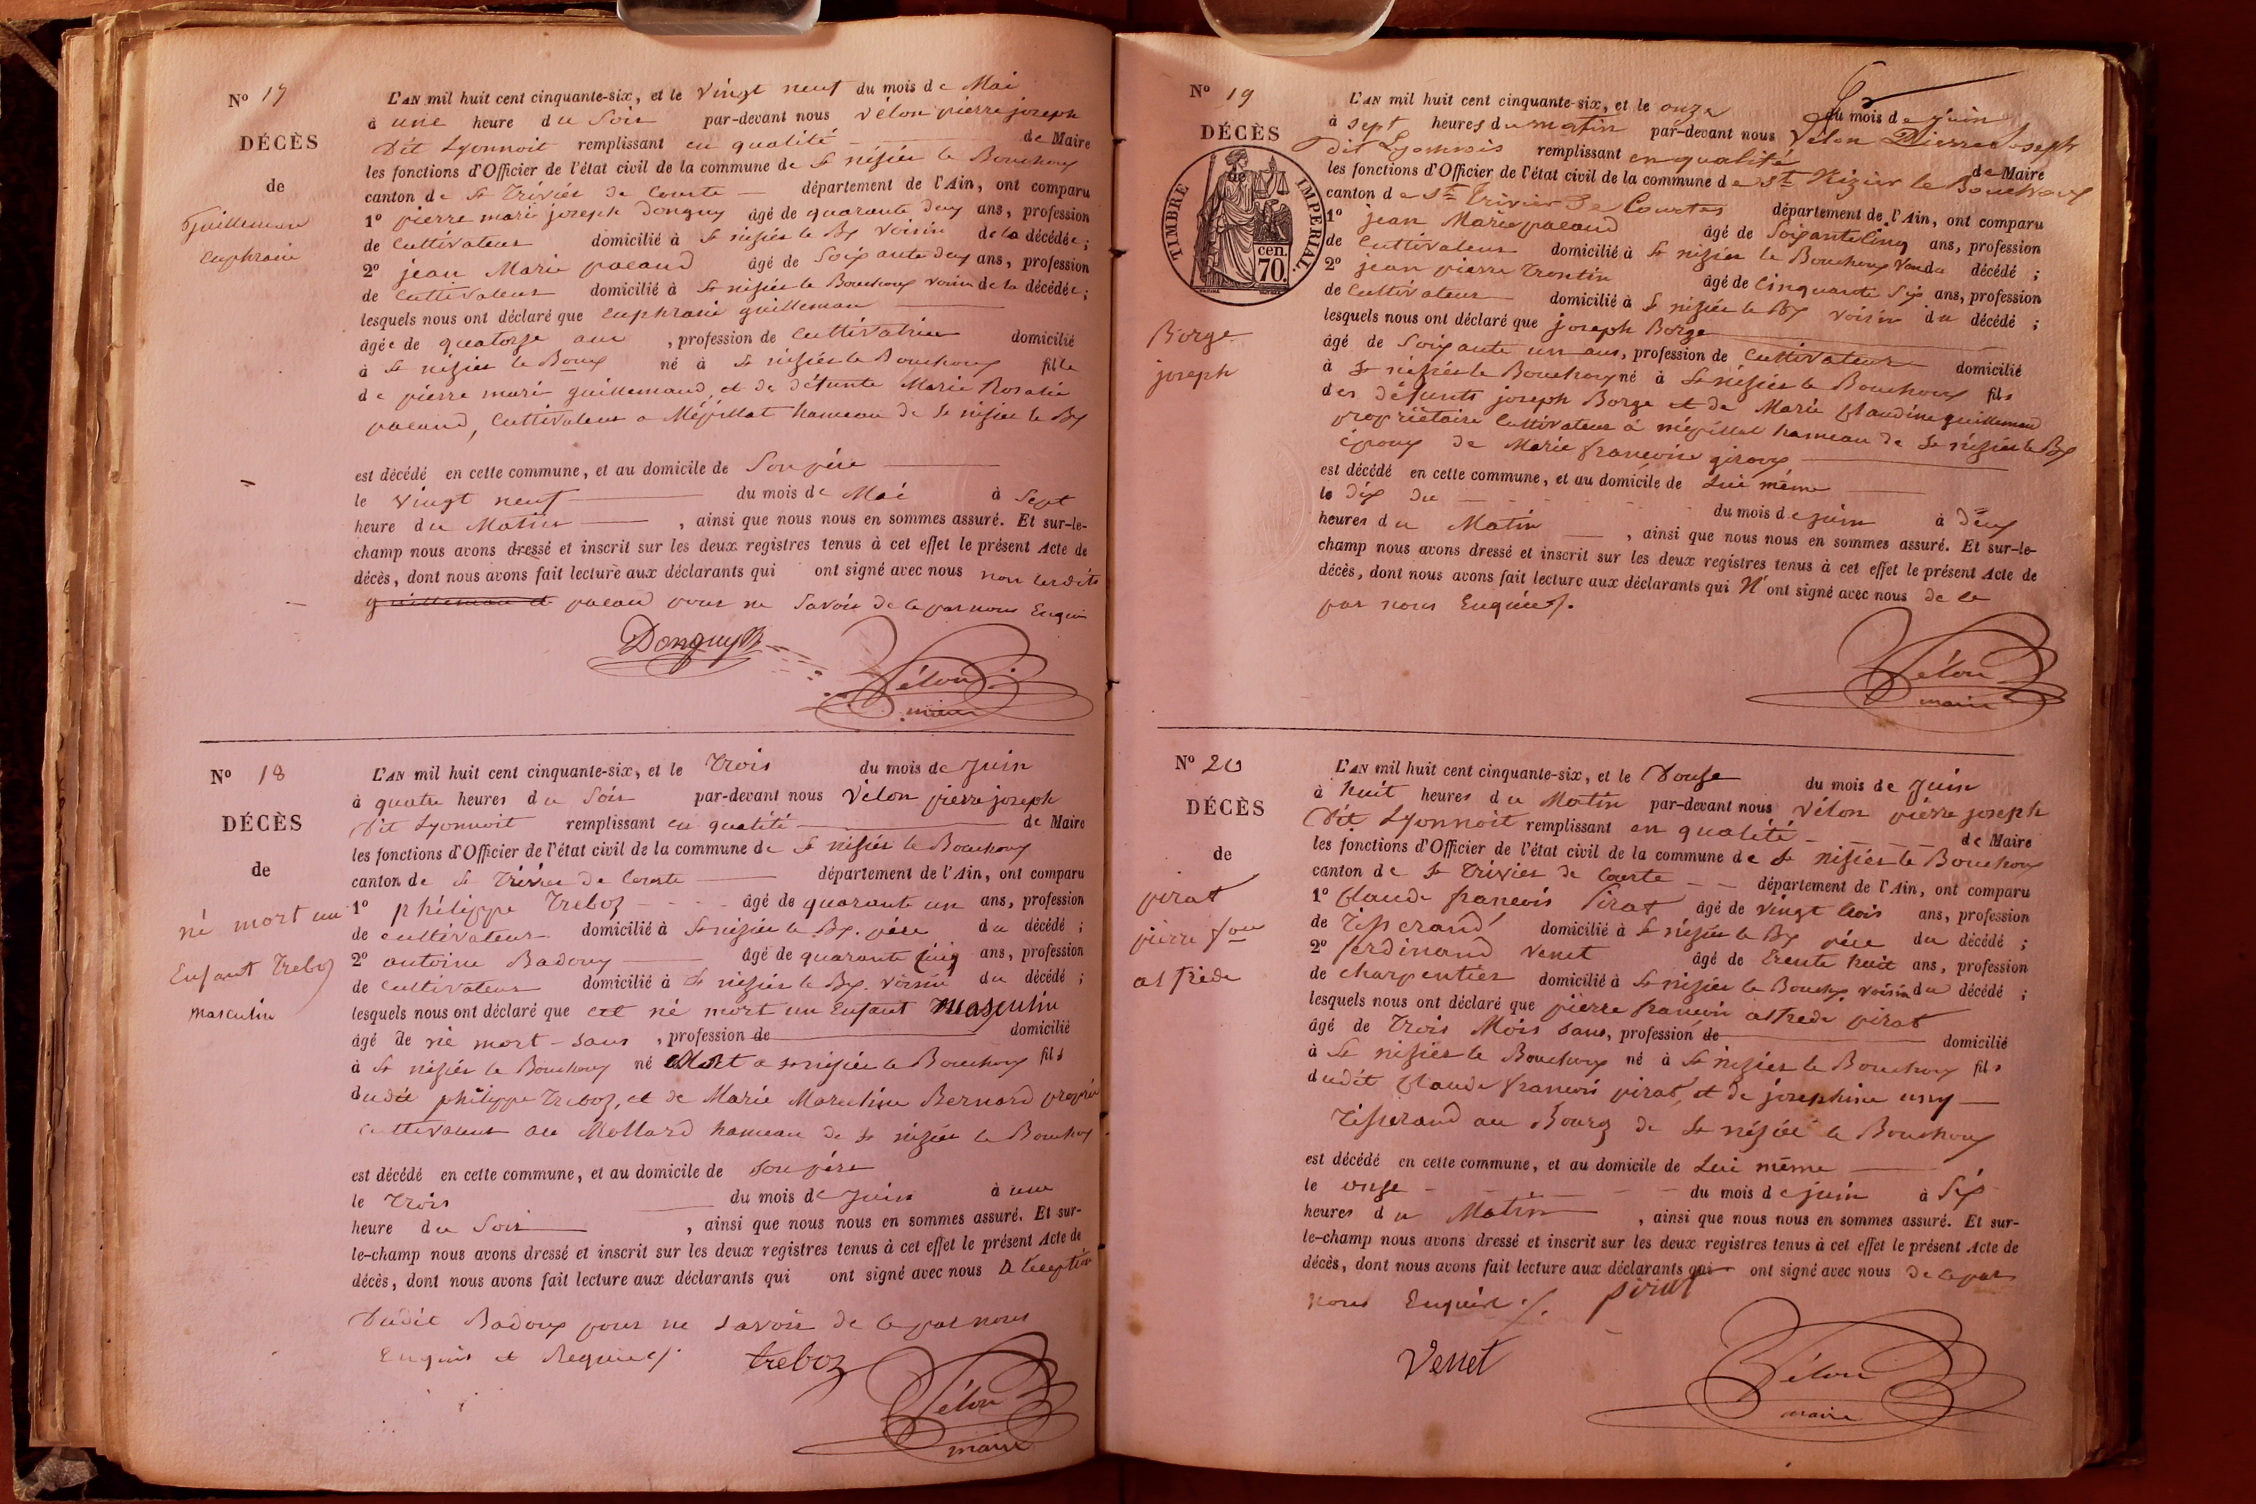 No 17
DÉCÈS
de
Guilleman
Euphraie
L'AN mil huit cent cinquante-six, et le vingt neuf du mois de Mai
à une heure du Soir par-devant nous Vélon pierre joseph
Dit Lyonnoit remplissant en qualité de Maire
les fonctions d'Officier de l'état civil de la commune de St nisier le Bouchoux
canton de St Trivier de Courte département de l'Ain, ont comparu
1o pierre mari joseph Donguy âgé de quarante deux ans, profession
de Cultivateur domicilié à St nisier le Bx voisin de la décédée ;
2o jean Marie pacaud âgé de Soixante deux ans, profession
de Cultivateur domicilié à St nisier le Bouchoux voisin de la décédée ;
lesquels nous ont déclaré que Euphraie guilleman
âgée de quatorze ans , profession de Cultivatrice domicilié
à St nisier le Boux né à St nisier le Bouchoux fille
de pierre mari guillemaud, et de défunte Marie Rosalie
pacaud, Cultivateur a Mépillat hameau de St nisier le Bx
est décédé en cette commune, et au domicile de Son père
le vingt neuf du mois de Mai à Sept
heure du Matin , ainsi que nous nous en sommes assuré. Et sur-le-
champ nous avons dressé et inscrit sur les deux registres tenus à cet effet le présent Acte de
décès, dont nous avons fait lecture aux déclarants qui ont signé avec nous non
pacaud pour ne Savoir de ce par nous Enquis
Donguy
Vélon
maire
No 18
DÉCÈS
de
né mort un
Enfant Treboz
masculin
L'AN mil huit cent cinquante-six, et le Trois du mois de Juin
à quatre heures du Soir par-devant nous Vélon pierre joseph
Dit Lyonnoit remplissant en qualité de Maire
les fonctions d'Officier de l'état civil de la commune de St nisier le Bouchoux
canton de St Trivier de Courte département de l'Ain, ont comparu
1o philippe Treboz âgé de quarante un ans, profession
de cultivateur domicilié à St nisier le Bx. père du décédé ;
2o antoine Badoux âgé de quarante cinq ans, profession
de Cultivateur domicilié à St nisier le Bx. voisin du décédé ;
lesquels nous ont déclaré que est né mort un Enfant masculin
âgé de né mort - sans , profession de domicilié
à St nisier le Bouchoux né Mort a St nisier le Bouchoux fils
dudit philippe Treboz, et de Marie Marceline Bernard propre
cultivateur au Mollard hameau de St nisier le Bouchoux
est décédé en cette commune, et au domicile de son père
le Trois du mois de Juin à une
heure du Soir , ainsi que nous nous en sommes assuré. Et sur-
le-champ nous avons dressé et inscrit sur les deux registres tenus à cet effet le présent Acte de
décès, dont nous avons fait lecture aux déclarants qui ont signé avec nous a l'exception
Dudit Badoux pour ne savoir de ce par nous
Enquis et Requis
treboz
Vélon
maire
No 19
DÉCÈS
de
TIMBRE IMPERIAL.
70 cen.
Borge
joseph
L'AN mil huit cent cinquante-six, et le onze du mois de juin
à sept heures du matin par-devant nous Vélon Pierre Joseph
dit Lyonnois remplissant en qualité de Maire
les fonctions d'Officier de l'état civil de la commune de St Nizier le Bouchoux
canton de St Trivier de Courtes département de l'Ain, ont comparu
1o jean Marie pacaud âgé de Soixante cinq ans, profession
de Cultivateur domicilié à St nizier le Bouchoux décédé ;
2o jean pierre Trontin âgé de Cinquante Six ans, profession
de Cultivateur domicilié à St nisier le Bx voisin du décédé ;
lesquels nous ont déclaré que joseph Borge
âgé de Soixante un ans, profession de Cultivateur domicilié
à St nisier le Bouchoux né à St nisier le Bouchoux fils
des défunts joseph Borge et de Marie Claudine guillemaud
propriétaire Cultivateur à mépillat hameau de St nisier le Bx
époux de Marie francoise giroux
est décédé en cette commune, et au domicile de Lui même
le dix du du mois de juin à deux
heures du Matin , ainsi que nous nous en sommes assuré. Et sur-le-
champ nous avons dressé et inscrit sur les deux registres tenus à cet effet le présent Acte de
décès, dont nous avons fait lecture aux déclarants qui N'ont signé avec nous de ce
par nous Enquis
Vélon
maire
No 20
DÉCÈS
de
pirat
pierre fois
alfrede
L'AN mil huit cent cinquante-six, et le Douze du mois de juin
à huit heures du Matin par-devant nous Vélon pierre joseph
Dit Lyonnoit remplissant en qualité de Maire
les fonctions d'Officier de l'état civil de la commune de St nisier le Bouchoux
canton de St Trivier de Courte département de l'Ain, ont comparu
1o Claude francois Pirat âgé de vingt trois ans, profession
de Tisserand domicilié à St nisier le Bx père du décédé ;
2o ferdinand venet âgé de trente huit ans, profession
de charpentier domicilié à St nisier le Boucx. voisin du décédé ;
lesquels nous ont déclaré que pierre francois alfrede pirat
âgé de trois Mois sans, profession de domicilié
à St nisier le Bouchoux né à St nizier le Bouchoux fils
dudit Claude francois pirat, et de josephine uny
Tisserand au Bourg de St nisier le Bouchoux
est décédé en cette commune, et au domicile de Lui même
le onze du mois de juin à Six
heures du Matin , ainsi que nous nous en sommes assuré. Et sur-
le-champ nous avons dressé et inscrit sur les deux registres tenus à cet effet le présent Acte de
décès, dont nous avons fait lecture aux déclarants qui ont signé avec nous de ce par
nous Enquis
pirat
Venet
Vélon
maire